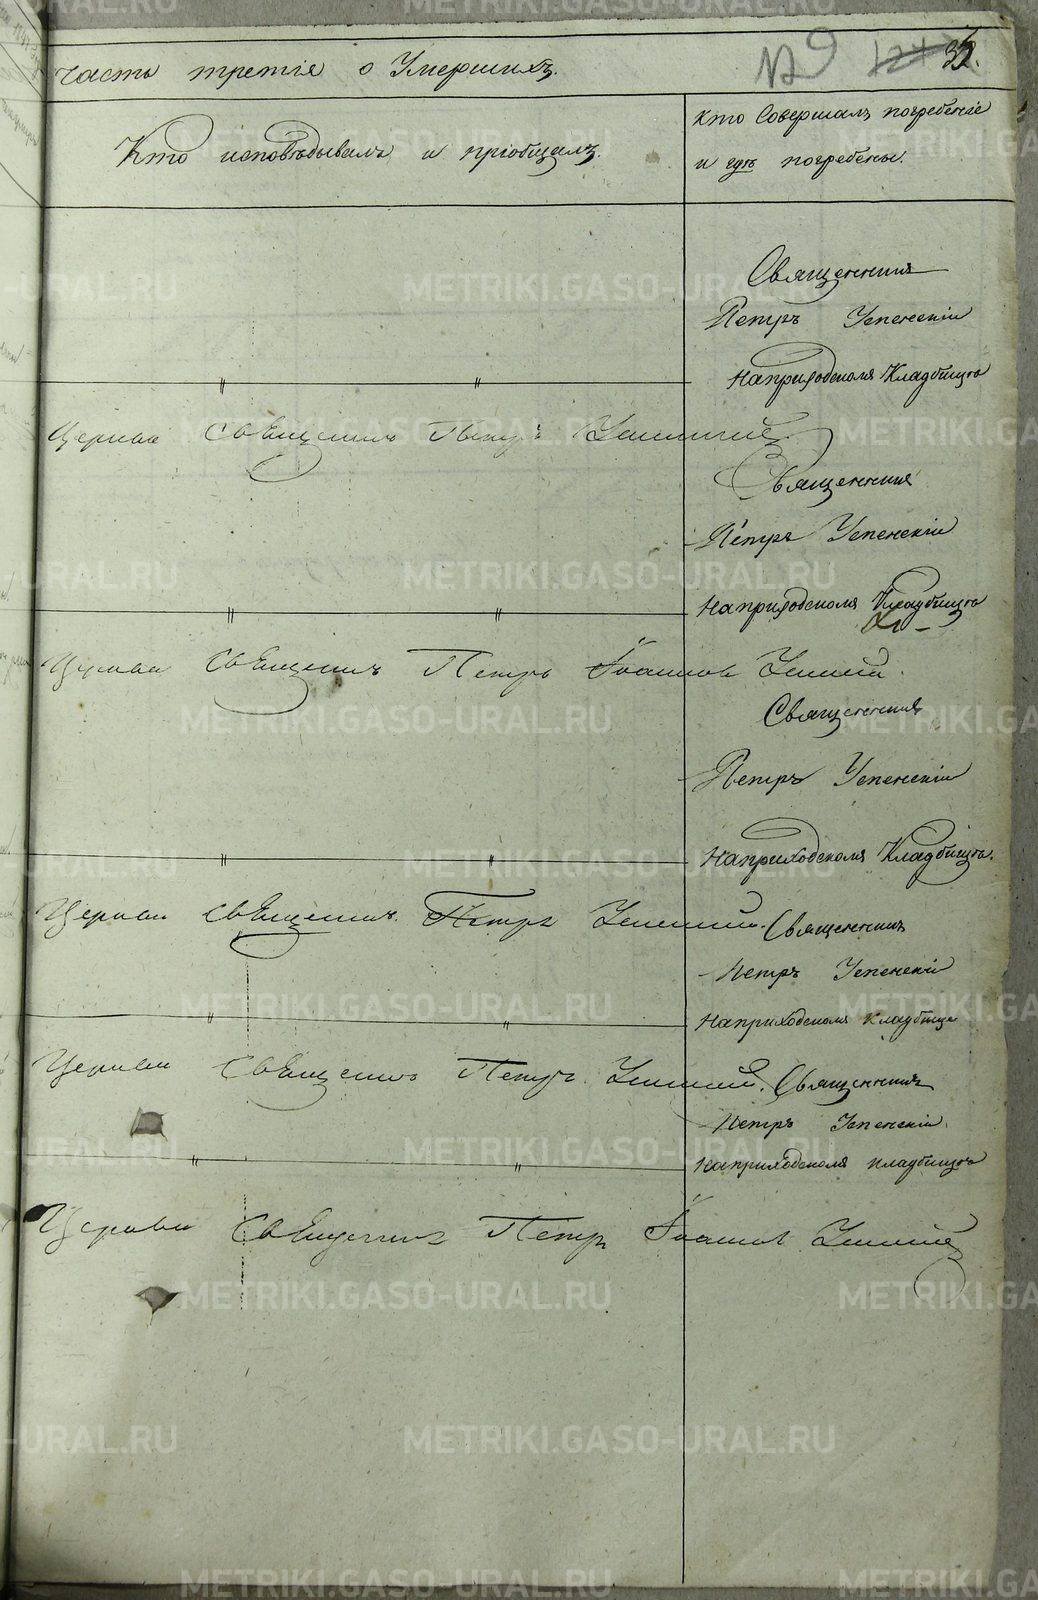 Часть третія о Умершихъ.
№ 9
35.
Кто исповѣдывалъ и пріобщалъ.
Кто Совершалъ погребеніе
и гдѣ погребены.
Священникъ
Петръ Успенскій
На приходскомъ Кладбищѣ
Священникъ Петръ Успенскій
Священникъ
Петръ Успенскій
На приходскомъ Кладбищѣ
Священникъ Петръ Іоанновъ Успенскій.
Священникъ
Петръ Успенскій
На приходскомъ Кладбищѣ.
Священникъ Петръ Успенскій.
Священникъ
Петръ Успенскій
На приходскомъ кладбище
Священникъ Петръ Успенскій.
Священникъ
Петръ Успенскій
На приходскомъ кладбищѣ
Священникъ Петръ Іоанновъ Успенскій
METRIKI.GASO-URAL.RU